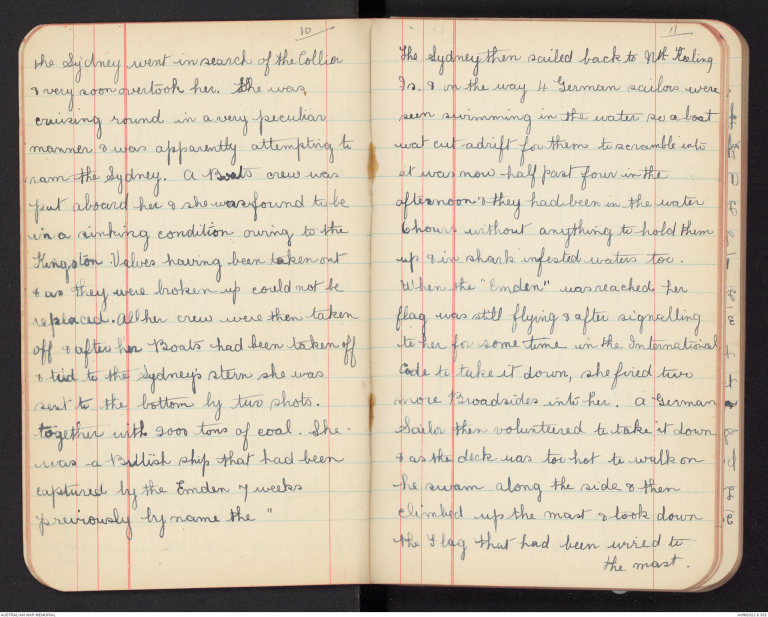 10
the Sydney went in search of the Collier
& very soon overtook her. She was
cruising round in a very peculiar
manner & was apparently attempting to
ram the Sydney. A Boats crew was
put aboard her & she was found to be
in a sinking condition owing to the
Kingston Valves having been taken out
& as they were broken up could not be
replaced. All her crew were then taken
off & after her Boats had been taken off
& tied to the Sydney's stern she was
sent to the bottom by two shots.
together with 2000 tons of coal. She
was a British ship that had been
captured by the Emden 7 weeks
previously by name the "
11
The Sydney then sailed back to Nth Keeling
Is. & on the way 4 German sailors were
seen swimming in the water so a boat
wat cut adrift for them to scramble into
it was now half past four in the
afternoon & they had been in the water
6 hours without anything to hold them
up & in shark infested waters too.
When the "Emden" was reached her
flag was still flying & after signalling
to her for some time in the International
Code to take it down, she fired two
more Broadsides into her. A German
Sailor then volunteered to take it down
& as the deck was too hot to walk on
he swam along the side & then
climbed up the mast & took down
the Flag that had been wried to
the mast.
AUSTRALIAN WAR MEMORIAL